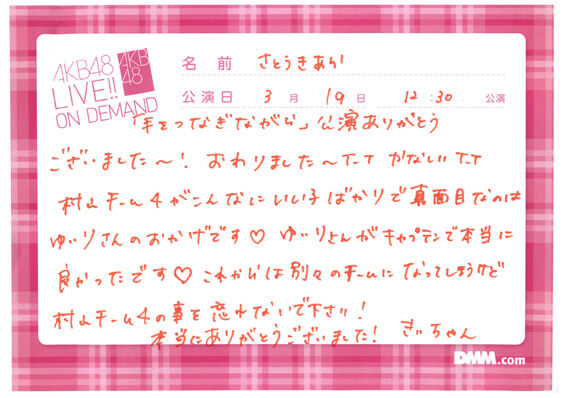 AKB48
LIVE!!
ON DEMAND
AKB
48
名前 さとうきあら
公演日 3月19日 12:30 公演
「手をつなぎながら」公演ありがとう
ございました〜! おわりました〜T-T かなしいT-T
村山チーム4がこんなにいい子ばかりで真面目なのは
ゆいりさんのおかげです♡ ゆいりさんがキャプテンで本当に
良かったです♡ これからは別々のチームになってしまうけど
村山チーム4の事を忘れないで下さい!
本当にありがとうございました! きぃちゃん
DMM.com